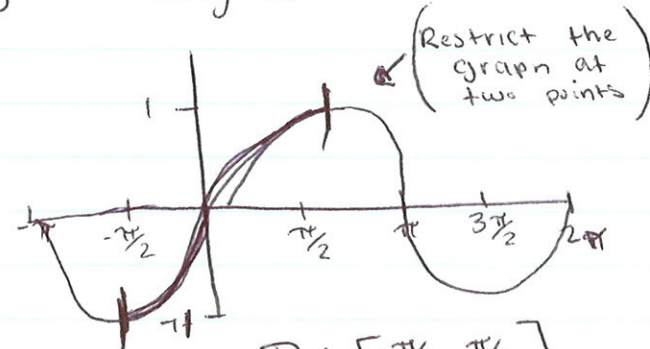 Restrict the
graph at
two points
1
-π
-π/2
π/2
π
3π/2
2π
-1